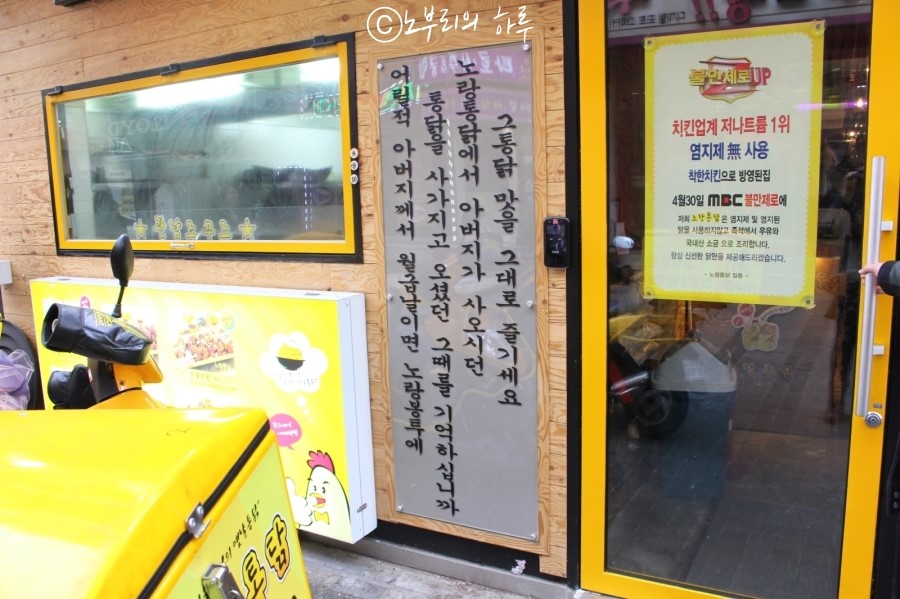 ©노부리의 하루
어릴적 아버지께서 월급날이면 노랑봉투에
통닭을 사가지고 오셨던 그때를 기억하십니까
노랑통닭에서 아버지가 사오시던
그통닭 맛을 그대로 즐기세요
불만제로UP
치킨업계 저나트륨 1위
염지제 無 사용
착한치킨으로 방영된집
4월30일 MBC 불만제로에
저희 노랑통닭은 염지제 및 염지된
닭을 사용하지않고 즉석에서 우유와
국내산 소금 으로 조리합니다.
항상 신선한 닭만을 제공해드리겠습니다.
- 노랑통닭 일동 -
통닭